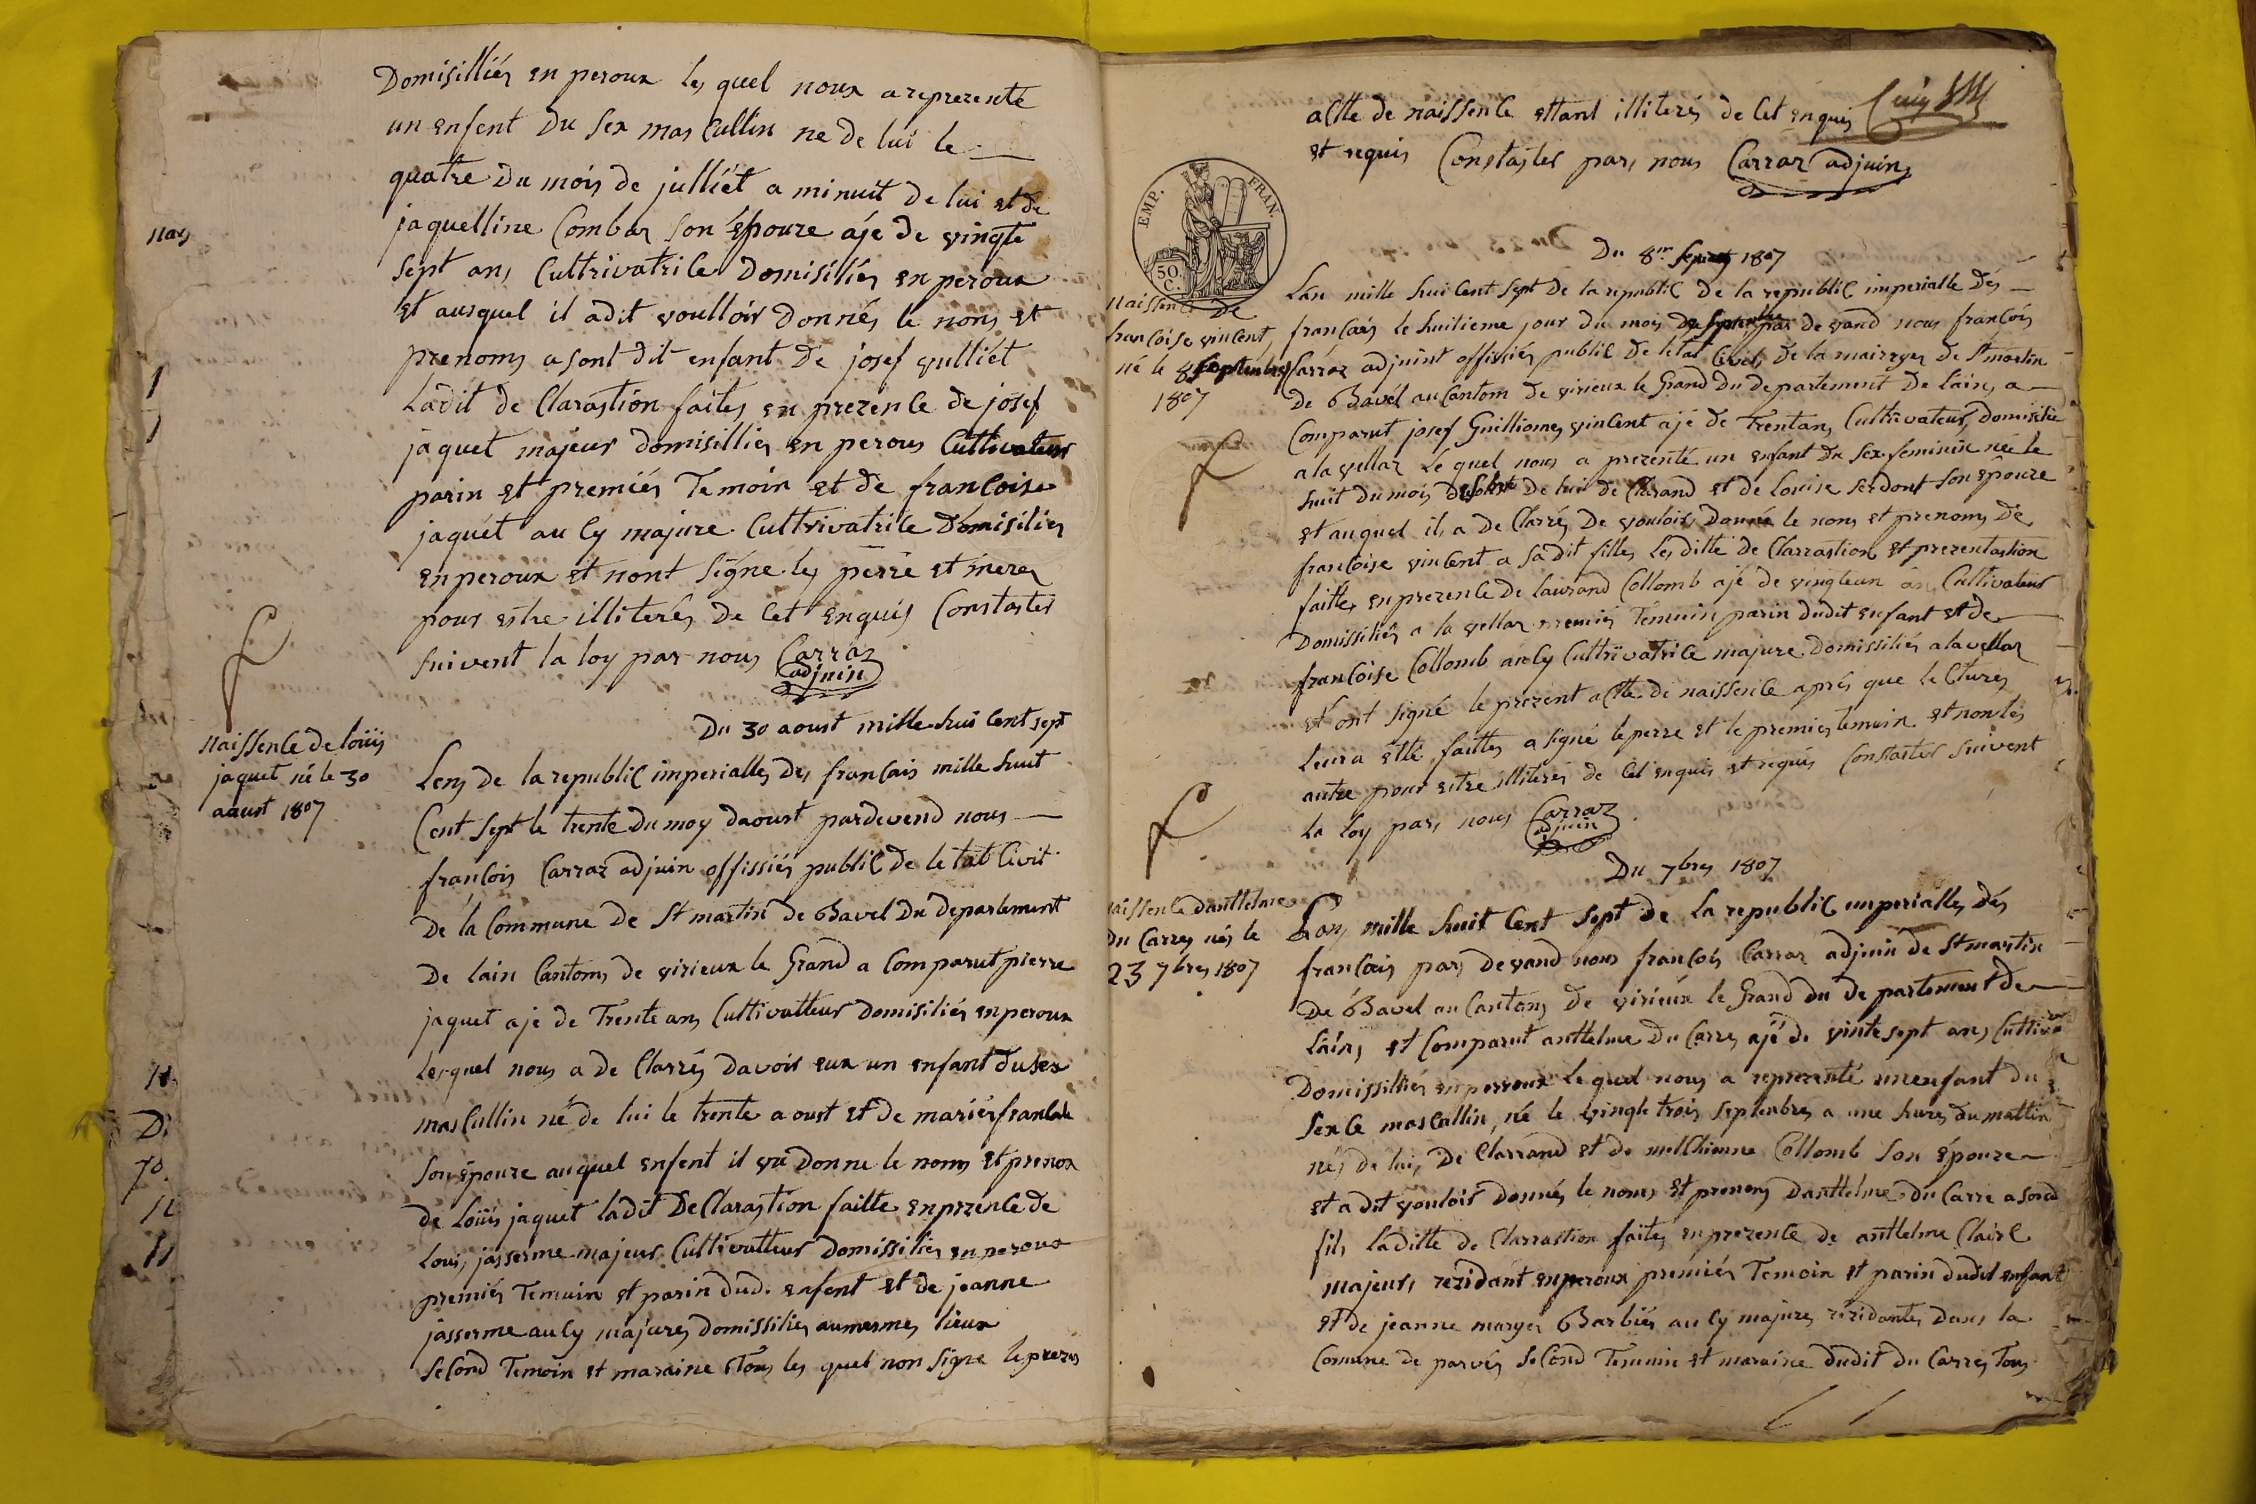 Domisilliés en peroux les quel noux a reprezenté
un enfent du sex mas Cullin ne de lui le
quatre du mois de julliét a minuit de lui et de
jaquelline Combaz son épouze ajé de vingte
sept ans Cultrivatrice Domisiliés en peroux
et ausquel il adit voulloir donnés le nons et
prenoms a sont dit enfant de josef vulliét
Ladit de Clarastion faites en prezence de josef
jaquet majeur domisilliés en peroux Cultivateur
parin et premiés Temoin et de francoise
jaquét au Cy majure Cultrivatrice Domisiliés
en peroux et nont signe les perre et meres
pour estre illiterés de Cet enquis Constastés
suivent la loy par nous Carraz
adjuin
Naissence de loüis
jaquet né le 30
aaust 1807
Du 30 aoust mille huis Cent sept
Lens de la republic imperialles des francais mille huit
Cent sept le trente du moy daoust pardevend nous
francois Carraz adjuin offissiés public de le tat Civit
De la Commune de St martin de Bavel du departement
De lain Cantons de virieux le Grand a Comparut pierre
jaquet aje de Trente ans Cultivatteur domisiliés en peroux
Lesquel nous a de Clarrés davoir eux un enfant du sex
masCullin né de lui le trente aoust et de mariés
son épouze auquel enfent il vu donne le noms et prenox
de Loüis jaquet ladit DeClarastion faitte en prezence de
Loui, jasserme majeur Cultivatteur domissiliés en peroux
premiés Temuin et parin dud. enfent et de jeanne
jasserme au Cy majures domissiliés aumesmes lieux
seCond Temoin et maraine Tous les quel non signe le prezen
aCtte de naissence ettant illiterés de Cet enquis
et requis Constastés pars nous Carraz adjuins
EMP. FRAN.
50 C.
Naissence De
francoise vincent,
né le 8 septembres
1807
Du 8me 1807
Lan mille hui Cent sept de la republic de la republic imperialle dés
francaés le huitieme jour du mois de septembre par de vand nous francois
Carraz adjuint offissiés public de letat Civil, de la mairryes de St mostin
de Bavél au Cantom de virieux le Grand du departement de lain, a
Comparut josef Guilliomes vinCent ajé de Trentans Cultivateur, domisilie
a la vellaz Le quel nous a prezenté un enfant du sex feminin née le
huit du mois de lui de Clarand et de Louise serdont son épouze
et auquel ils a de Clarré, de vouloirs donné le nons et prenoms de
francoise vinCent a sadit filles Lesditte de Clarrastion et prezentastion
faittes en prezence de laurand Collomb ajé de vingteun an Cultivateur
Domissiliés a la vellaz premiés Témuin parin dudit enfant et de
francoise Collomb au Cy Cultrivatrice majure domissiliés a la vellaz
et ont signé le prezent aCtte de naissence aprés que le Ctures
Leura ette faittes a signé le perre et le premier temuin et non les
autre pour estre illiterés de Cet enquis et requis Constastés suivent
la loy pars nous Carraz
adjuin
Naissence danttelme
Du Carres nés le
23 7bres 1807
Du 7bres 1807
Lans mille huit Cent sept de La republic imperialles dés
francais pars devand nous francois Carraz adjuin de St martin
De Bavel au Cantons de virieux le Grand du departement de
Lain, et Comparut anttelme du Carres ajé de vinte sept ans Cultiva
Domissilliés en perroux Le quel nous a reprezenté un enfant du
sexe masCullin, né le vingte trois septenbres a une hures du mattin
nés de lui, De Clarrand et de Collomb son épouze
et a dit vouloir donnés le nons et prenoms danttelme du Carre a sond
fils Laditte de Clarrastion faites en prezence de anttelme Claire
majeurs rezidant en peroux premiér Temoin et parin dudit enfant
et de jeanne maryes Barbiés au Cy majures rezidantes dans la
Comune de parvés seCond Temuin et maraine dudit du Carres Tous